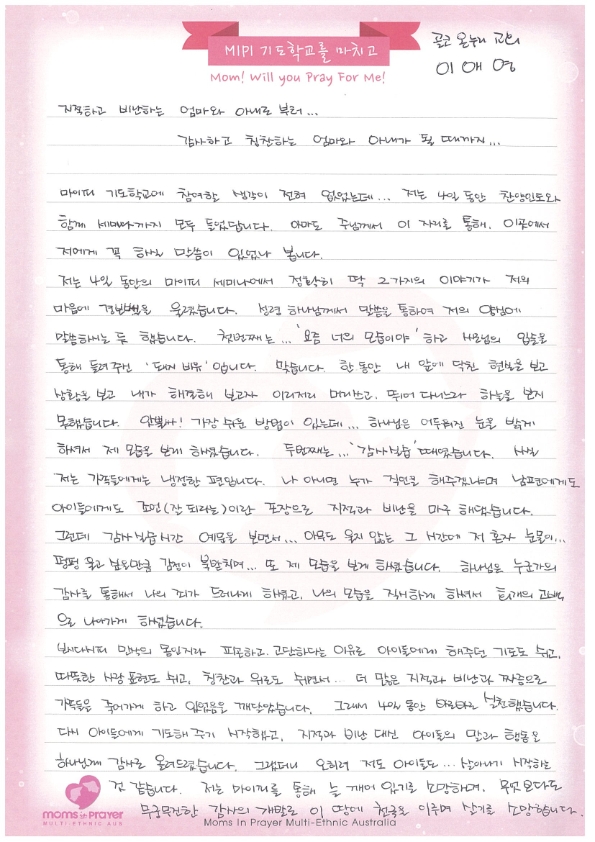 MIPI 기도학교를 마치고
Mom! Will you Pray For Me!
골고 온누리 교회
이애영
지적하고 비난하는 엄마와 아내로 부터...
감사하고 칭찬하는 엄마와 아내가 될 때까지...
마이피 기도학교에 참여할 생각이 전혀 없었는데... 저는 4일 동안 찬양인도와
함께 세미나까지 모두 들었답니다. 아마도 주님께서 이 자리를 통해, 이곳에서
저에게 꼭 하실 말씀이 있었나 봅니다.
저는 4일 동안의 마이피 세미나에서 정확히 딱 2가지의 이야기가 저의
마음에 경보벨을 울렸습니다. 성령 하나님께서 말씀을 통하여 저의 양심에
말씀하시는 듯 했습니다. 첫번째는... '요즘 너의 모습이야' 하고 사모님의 입술을
통해 들려주신 '돼지 비유' 입니다. 맞습니다. 한 동안 내 앞에 닥친 현실을 보고
상황을 보고 내가 해결해 보고자 이리저리 머리쓰고, 뛰어 다니느라 하늘을 보지
못했습니다. 아뿔싸! 가장 쉬운 방법이 있는데... 하나님은 어두워진 눈을 밝게
하셔서 제 모습을 보게 하셨습니다. 두번째는... '감사실습' 때였습니다. 사실
저는 가족들에게는 냉정한 편입니다. 나 아니면 누가 직언을 해주겠냐며 남편에게도
아이들에게도 조언(잘 되라는)이란 포장으로 지적과 비난을 마구 해댔습니다.
그런데 감사실습시간 예문을 보면서... 아무도 울지 않는 그 시간에 저 혼자 눈물이...
펑펑 울고 싶은만큼 감정이 북받치며... 또 제 모습을 보게 하셨습니다. 하나님은 누군가의
감사를 통해서 나의 죄가 드러나게 하셨고, 나의 모습을 직시하게 하셔서 회개의 고백
으로 나아가게 하셨습니다.
만삭의 몸인거라 피곤하고, 고단하다는 이유로 아이들에게 해주던 기도도 쉬고,
따뜻한 사랑 표현도 쉬고, 칭찬과 위로도 쉬면서... 더 많은 지적과 비난과 짜증으로
가족들을 죽어가게 하고 있었음을 깨달았습니다. 그래서 4일 동안 바로바로 실천했습니다.
다시 아이들에게 기도해 주기 시작했고, 지적과 비난 대신 아이들의 말과 행동을
하나님께 감사로 올려드렸습니다. 그랬더니 오히려 저도 아이들도... 살아나기 시작하는
것 같습니다. 저는 마이피를 통해 는 깨어 있기를 소망하며, 무엇보다도
무궁무진한 감사의 개발로 이 땅에 천국을 이루며 살기를 소망합니다.
moms in prayer
MULTI-ETHNIC AUS
Moms In Prayer Multi-Ethnic Australia